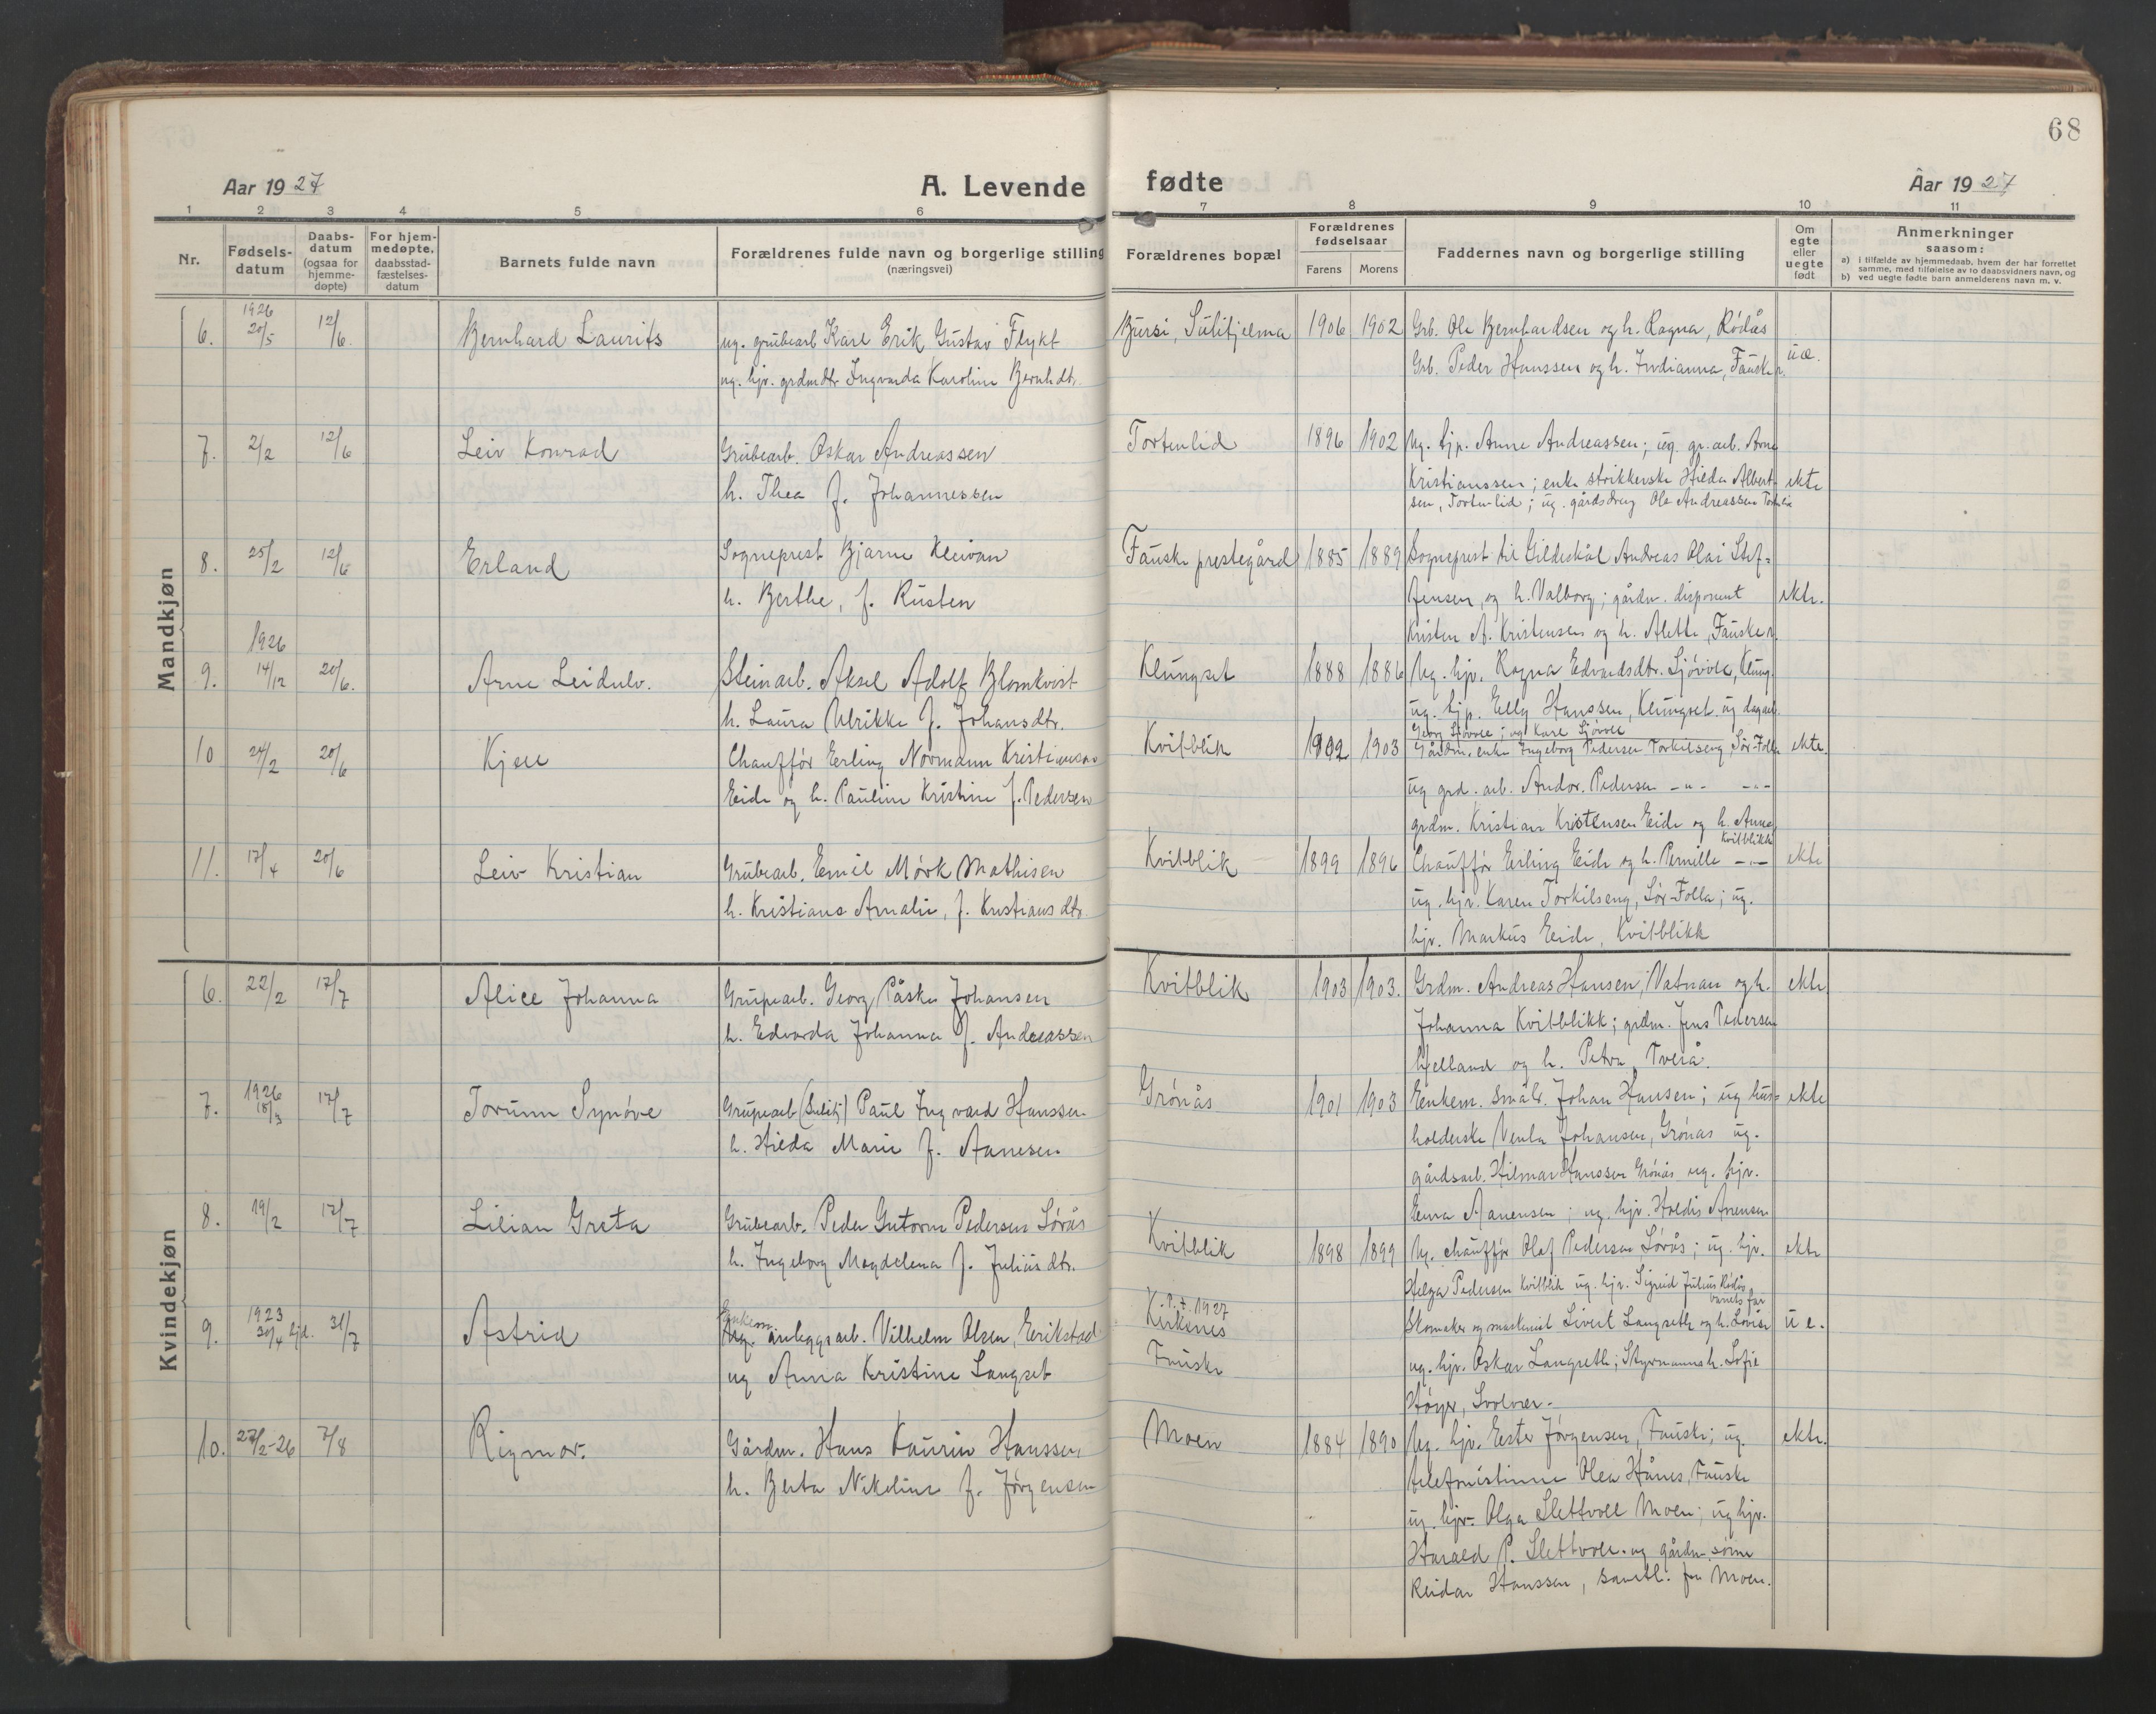 68
Aar 1927
A. Levende
fødte
Aar 1927
1 2 3 4 5 6 7 8 9 10 11
Nr.
Fødsels-
datum
Daabs-
datum
(ogsaa for
hjemme-
døpte)
For hjem-
medøpte,
daabsstad-
fæstelses-
datum
Barnets fulde navn
Forældrenes fulde navn og borgerlige stilling
(næringsvei)
Forældrenes bopæl
Forældrenes
fødselsaar
Farens Morens
Faddernes navn og borgerlige stilling
Om
egte
eller
uegte
født
Anmerkninger
saasom:
a) i tilfælde av hjemmedaab, hvem der har forrettet
samme, med tilføielse av to daabsvidners navn, og
b) ved uegte fødte barn anmelderens navn m. v.
Mandkjøn
6. 1926 20/5 12/6. Bernhard Laurits
ug. grubearb Karl Erik Gustav Flykt
ug. hjv. grdmdtr Ingvarda Karoline Bernhdtr.
Bursi, Sulitjelma 1906 1902
Grb. Ole Bernhardsen og h. Ragna, Rödås
Grb. Peder Hanssen og h. Indianna, Fauske
uæ.
7. 2/2 12/6 Leiv Konrad
Grubearb. Oskar Andreassen
h. Thea f. Johannessen
Tortenlid 1896 1902
Ug. tjp. Anne Andreassen; ug. gr.arb. Arne
Kristianssen; enke strikkerske Hilda Albert-
sen, Tortenlid; ug. gårdsdreng Ole Andreassen Tortenlid
ekte
8. 25/2 12/6 Erland
Sogneprest Bjarne Kleivan
h. Berthe, f. Rusten
Fauske prestegård 1885 1889
Sogneprest til Gildeskål Andreas Olai Stef-
fensen, og h. Valborg; gårdm. disponent
Kristen A. Kristensen og h. Alette, Fauske
ekte.
9. 1926 14/12 20/6. Arne Leidulv.
Steinarb. Aksel Adolf Blomkvist
h. Laura Ulrikke f. Johansdtr.
Klungset 1888 1886
Ug. hjv. Ragna Edvardsdtr. Sjövoll, Klung.
ug. tjp. Elly Hanssen, Klungset. ug dagarb.
Georg Sjövoll; ug Karl Sjövoll
10 24/2 20/6 Kjell
Chauffør Erling Normann Kristiansen
Eide og h. Pauline Kristine f. Pedersen
Kvitblik 1902 1903
Gårdm. enke Ingeborg Pedersen Torkilseng, Sör-Folla
ug grd. arb. Andor. Pedersen -"- -"-
grdm. Kristian Kristensen Eide og h. Anna,
Kvitblikk
ekte.
11. 17/4 20/6 Leiv Kristian
Grubearb. Emil Mörk Mathisen
h. Kristiane Amalie, f. Kristiansdtr.
Kvitblik 1899 1896
Chauffør Erling Eide og h. Pernille -"-
ug. hjv. Karen Torkilseng, Sör-Folla; ug.
hjv. Markus Eide, Kvitblikk
ekte
Kvindekjøn
6. 22/2 17/7 Alice Johanna
Grupearb. Georg Påske Johansen
h. Edvarda Johanna f. Andreassen
Kvitblik 1903 1903.
Grdm. Andreas Hansen, Vatnan og h.
Johanna Kvitblikk; grdm. Jens Pedersen
Hjelland og h. Petra, Tverå.
ekte
7. 1926 18/3 17/7 Torunn Synöve
Grupearb (Sulitj) Paul Ingvard Hanssen
h. Hilda Marie f. Aanesen
Grönås 1901 1903
Enkem. småbr. Johan Hansen; ug hus-
holderske Venla Johansen, Grönås ug.
gårdsarb. Hilmar Hanssen Grönås ug. hjv.
Erna Aanensen; ug. hjv. Holdis Anensen
ekte
8. 19/2 17/7 Lilian Greta
Grubearb. Peder Gutorm Pedersen Lörås
h. Ingeborg Magdelena f. Juliusdtr.
Kvitblik 1898 1899
Ug. chauffør Olaf Pedersen Lörås; ug. hjv.
Helga Pedersen Kvitblik ug. hjv. Sigrid Julius Rödås
ekte
9. 1923 30/4 hjd. 31/7 Astrid
Enkem.
Ug. anleggsarb. Vilhelm Olsen, Eerikstad
ug Anna Kristine Langset
p.t. 1927
Kirkenes
Fauske
barnets far
Skomaker og maskinist Sivert Langseth og h. Lovise
ug. hjv. Oskar Langseth; Styrmannsh. Sofie
Höyer, Svolvær.
u e.
10. 27/2-26 7/8 Rigmor.
Gårdm. Hans Kaurin Hanssen
h. Berta Nikoline f. Jörgensen
Moen 1884 1890
Ug. hjv. Ester Jörgensen, Fauske; ug.
telefonistinne Olea Hånes, Fauske
ug. hjv. Olga Slettvoll Moen; ug hjv.
Harald P. Slettvoll og gårdm.sönn
Reidar Hanssen, samtl. fra Moen.
ekte.